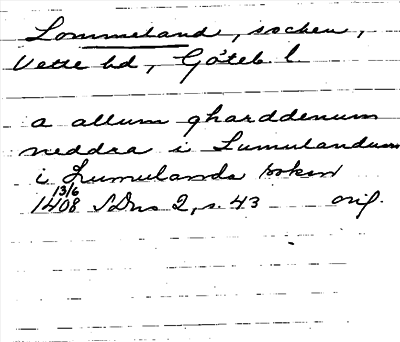 Lommeland, socken,
Vette hd, Göteb. l.
a allum gharddenum
neddra i Lumulandum
i Lumulanda sokn
13/6
1408 SDns 2, s. 43 orig.